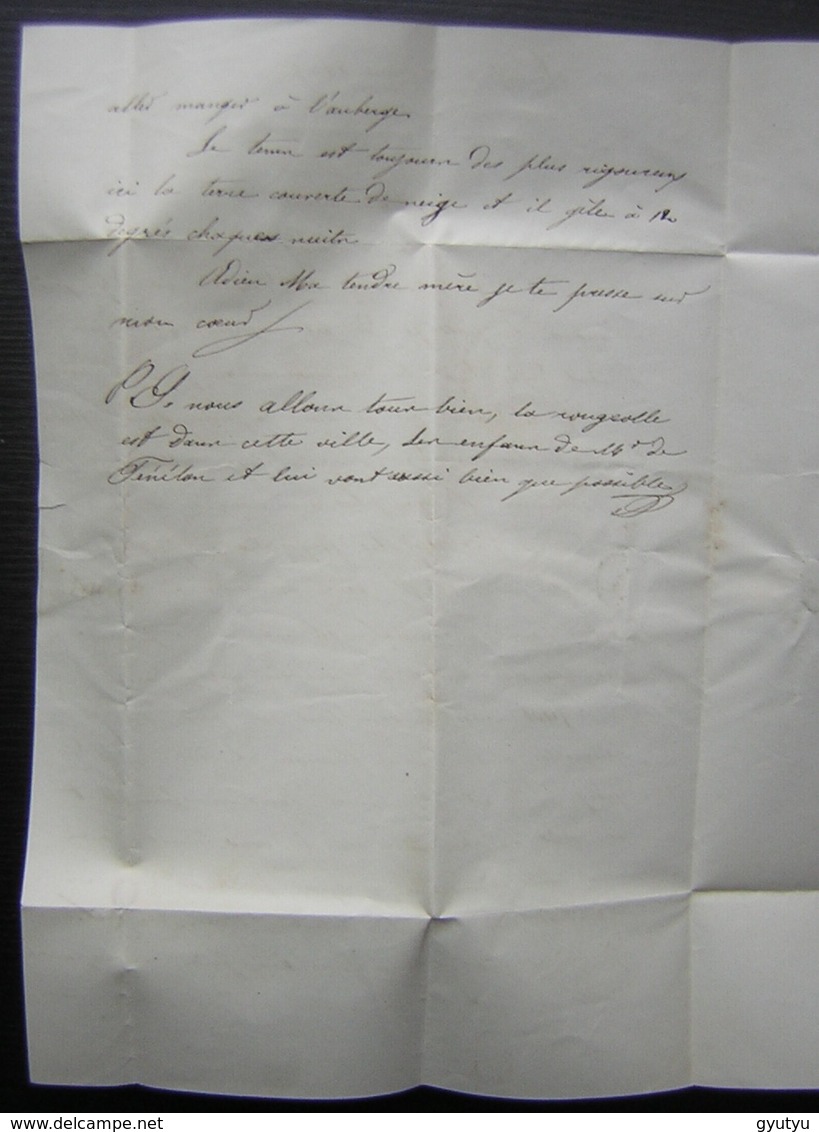 aller manger à l'auberge.
Le tems est toujours des plus rigoureux
ici la terre couverte de neige et il gèle à 12
degrés chaques nuits
Adieu Ma tendre mère je te presse sur
mon cœur
P S. nous allons tous bien, la rougeolle
est dans cette ville, les enfans de Mr de
Fénélon et lui vont aussi bien que possible
delcampe.net
gyutyu